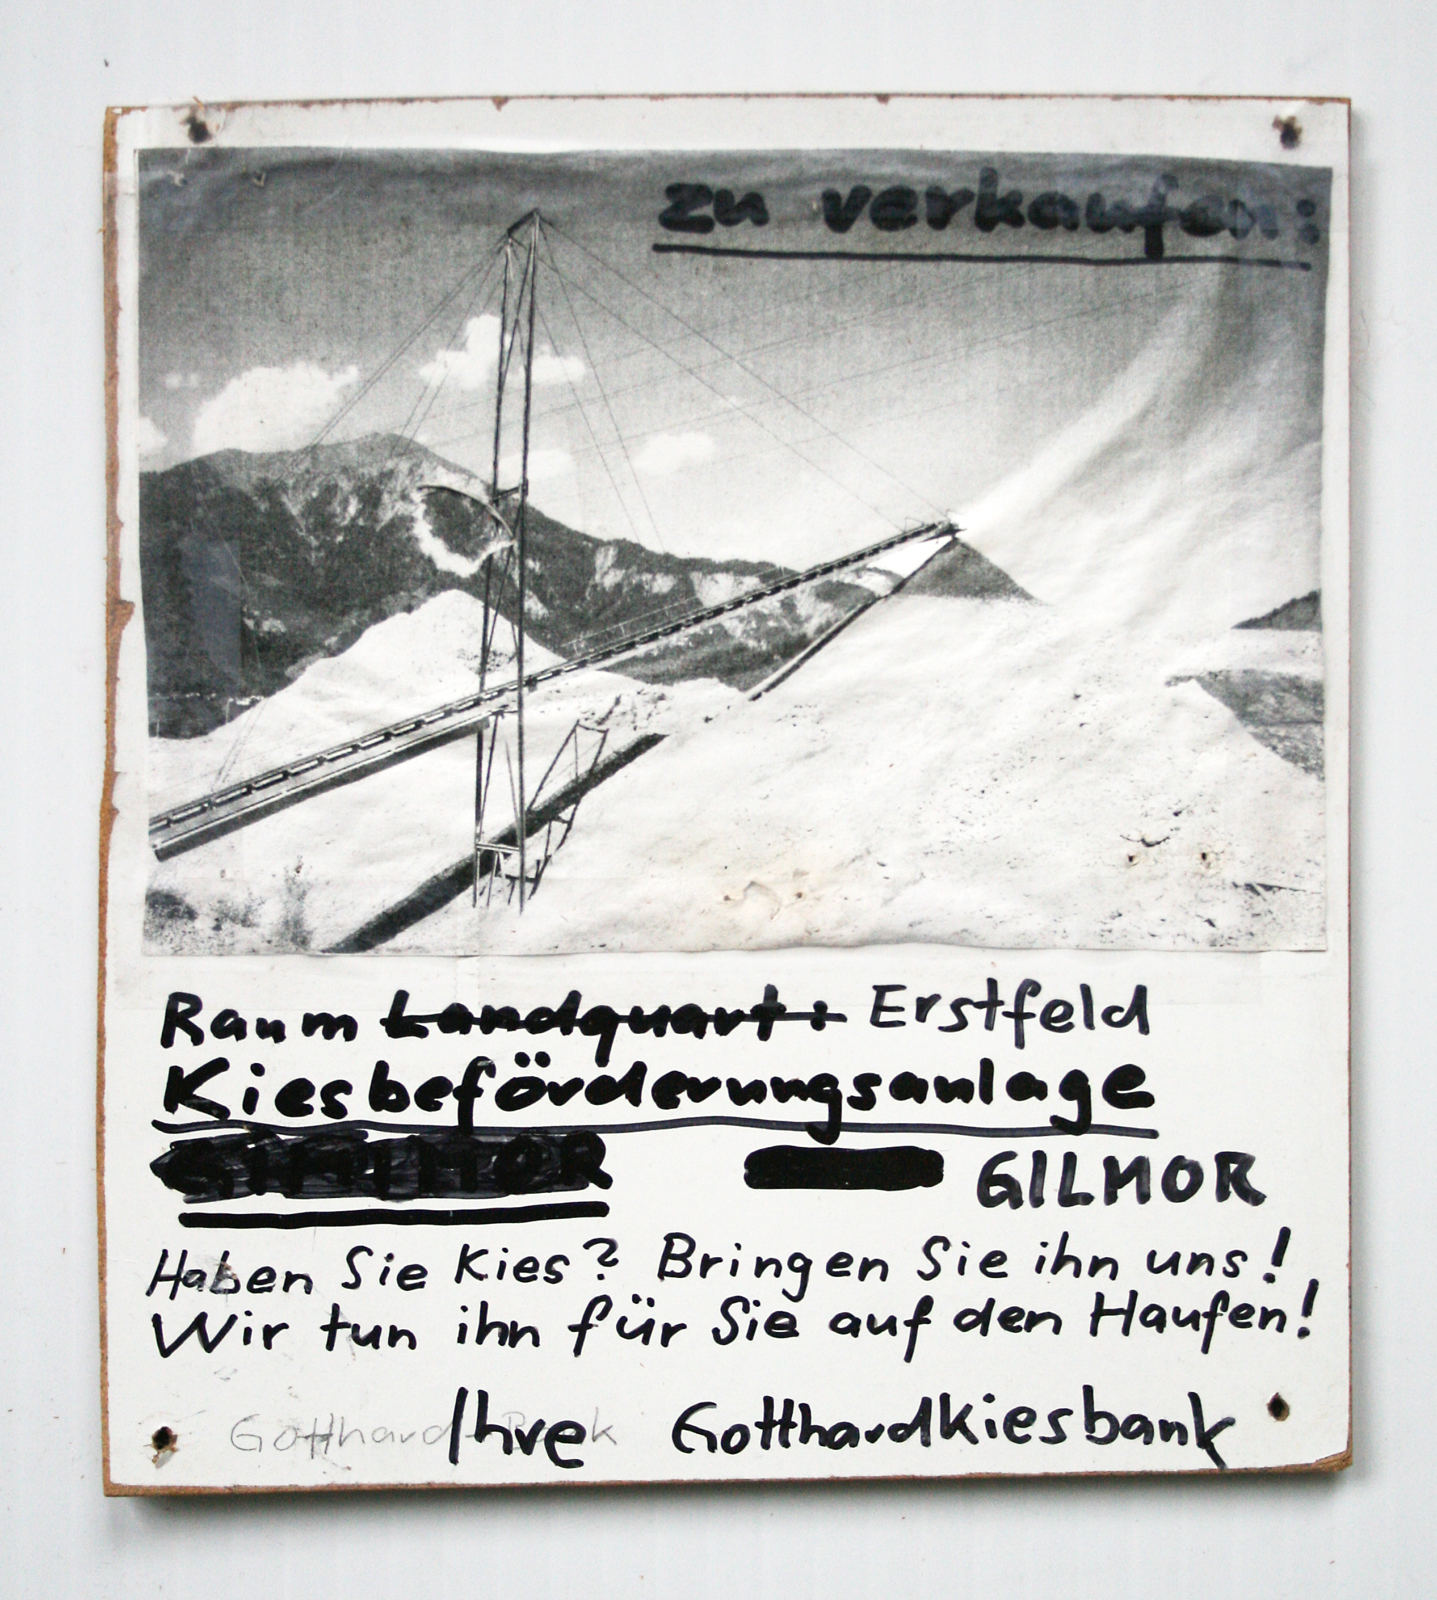 zu verkaufen:
Raum Landquart: Erstfeld
Kiesbeförderungsanlage
GILMOR
Haben Sie Kies? Bringen Sie ihn uns!
Wir tun ihn für Sie auf den Haufen!
Gotthard Bank Ihre Gotthardkiesbank